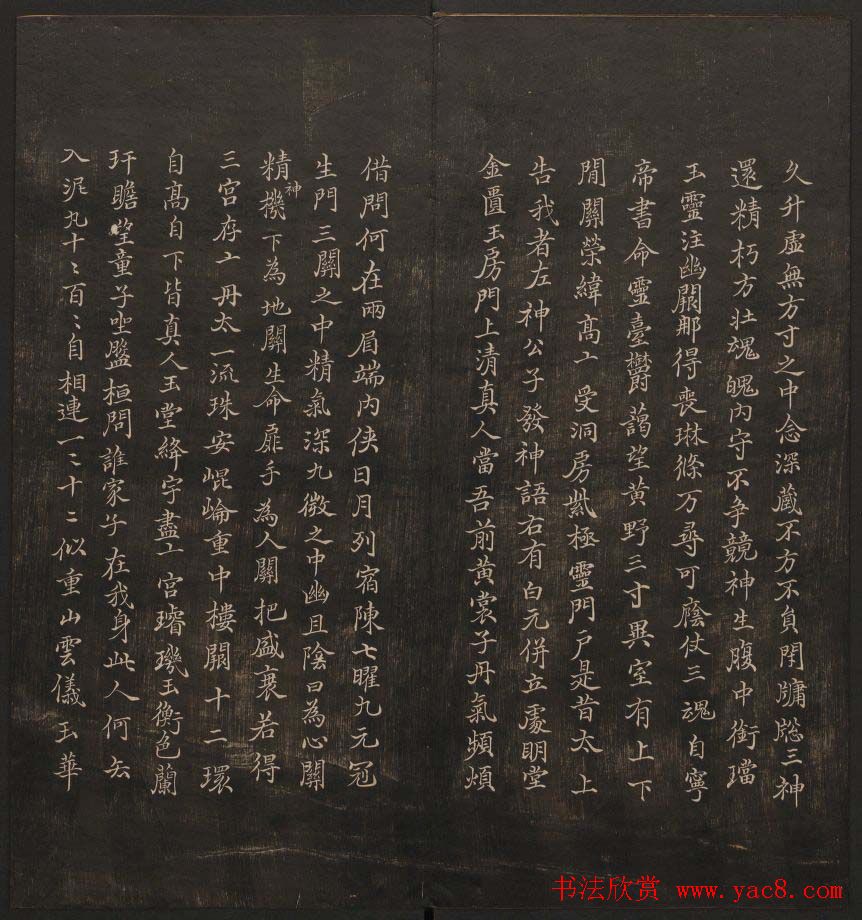 久升虛無方寸之中念深藏不方不負閉牖牕三神
還精朽方壯魂魄內守不争競神生腹中銜璫
玉靈注幽闕那得喪琳條万尋可廕仗三魂自寧
帝書命靈臺欝藹望黃野三寸異室有上下
閒關榮緯高丄受洞房紫極靈門戶是昔太上
告我者左神公子發神語右有白元併立處明堂
金匱玉房門上清真人當吾前黃裳子丹氣頻煩
借問何在兩眉端內俠日月列宿陳七曜九元冠
生門三關之中精氣深九微之中幽且陰口為心關
精神機下為地關生命扉手為人關把盛衰若得
三宮存丄丹太一流珠安崐崘重中樓閣十二環
自高自下皆真人玉堂絳宇盡丄宮璿璣玉衡色蘭
玕瞻望童子坐盤桓問誰家子在我身此人何去
入泥丸十〻百〻自相連一〻十二似重山雲儀玉華
书法欣赏 www.yac8.com